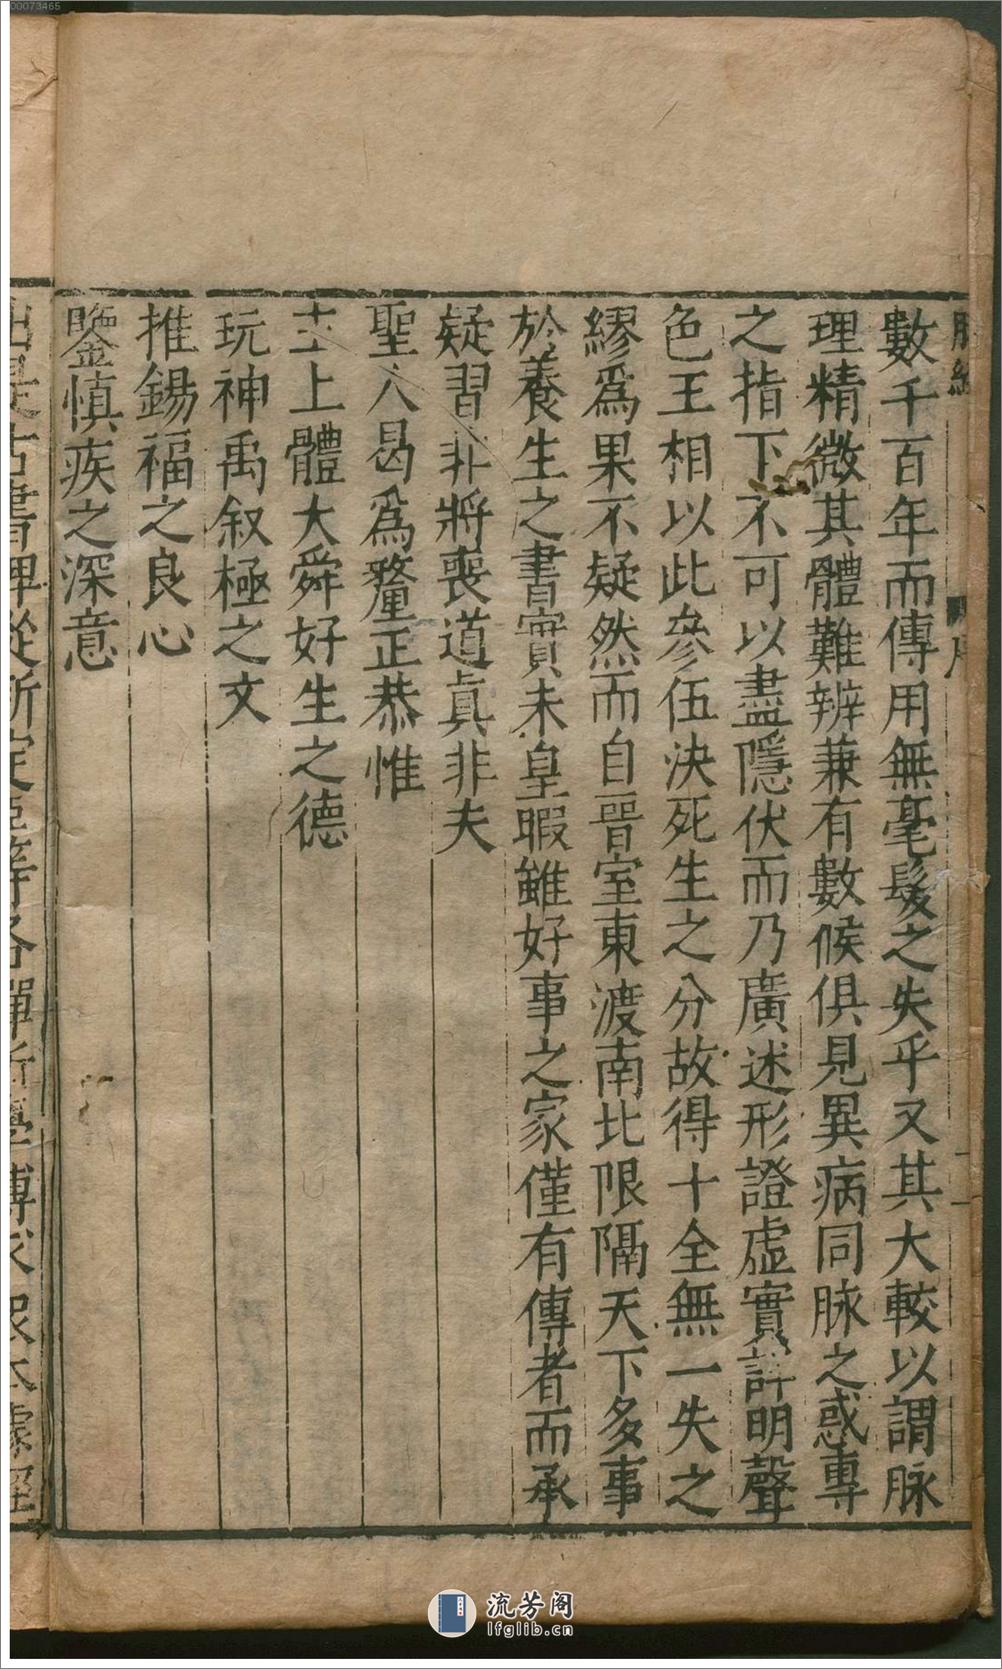 00073465
脉經
序
數千百年而傳用無毫髮之失乎又其大較以謂脉
理精微其體難辨兼有數候俱見異病同脉之惑專
之指下不可以盡隱伏而乃廣述形證虛實詳明聲
色王相以此參伍決死生之分故得十全無一失之
繆爲果不疑然而自晉室東渡南北限隔天下多事
於養生之書實未皇暇雖好事之家僅有傳者而承
疑習非將喪道眞非夫
聖人曷爲釐正恭惟
主上體大舜好生之德
玩神禹敘極之文
推錫福之良心
鑒慎疾之深意
流芳阁
lfglib.cn